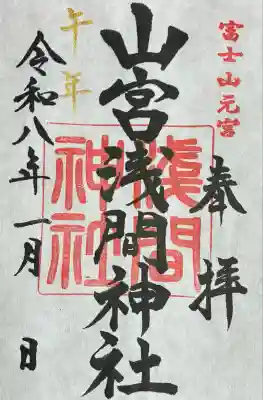 富士山元宮
奉拝
山宮浅間神社
浅間
神社
午年
令和八年一月 日